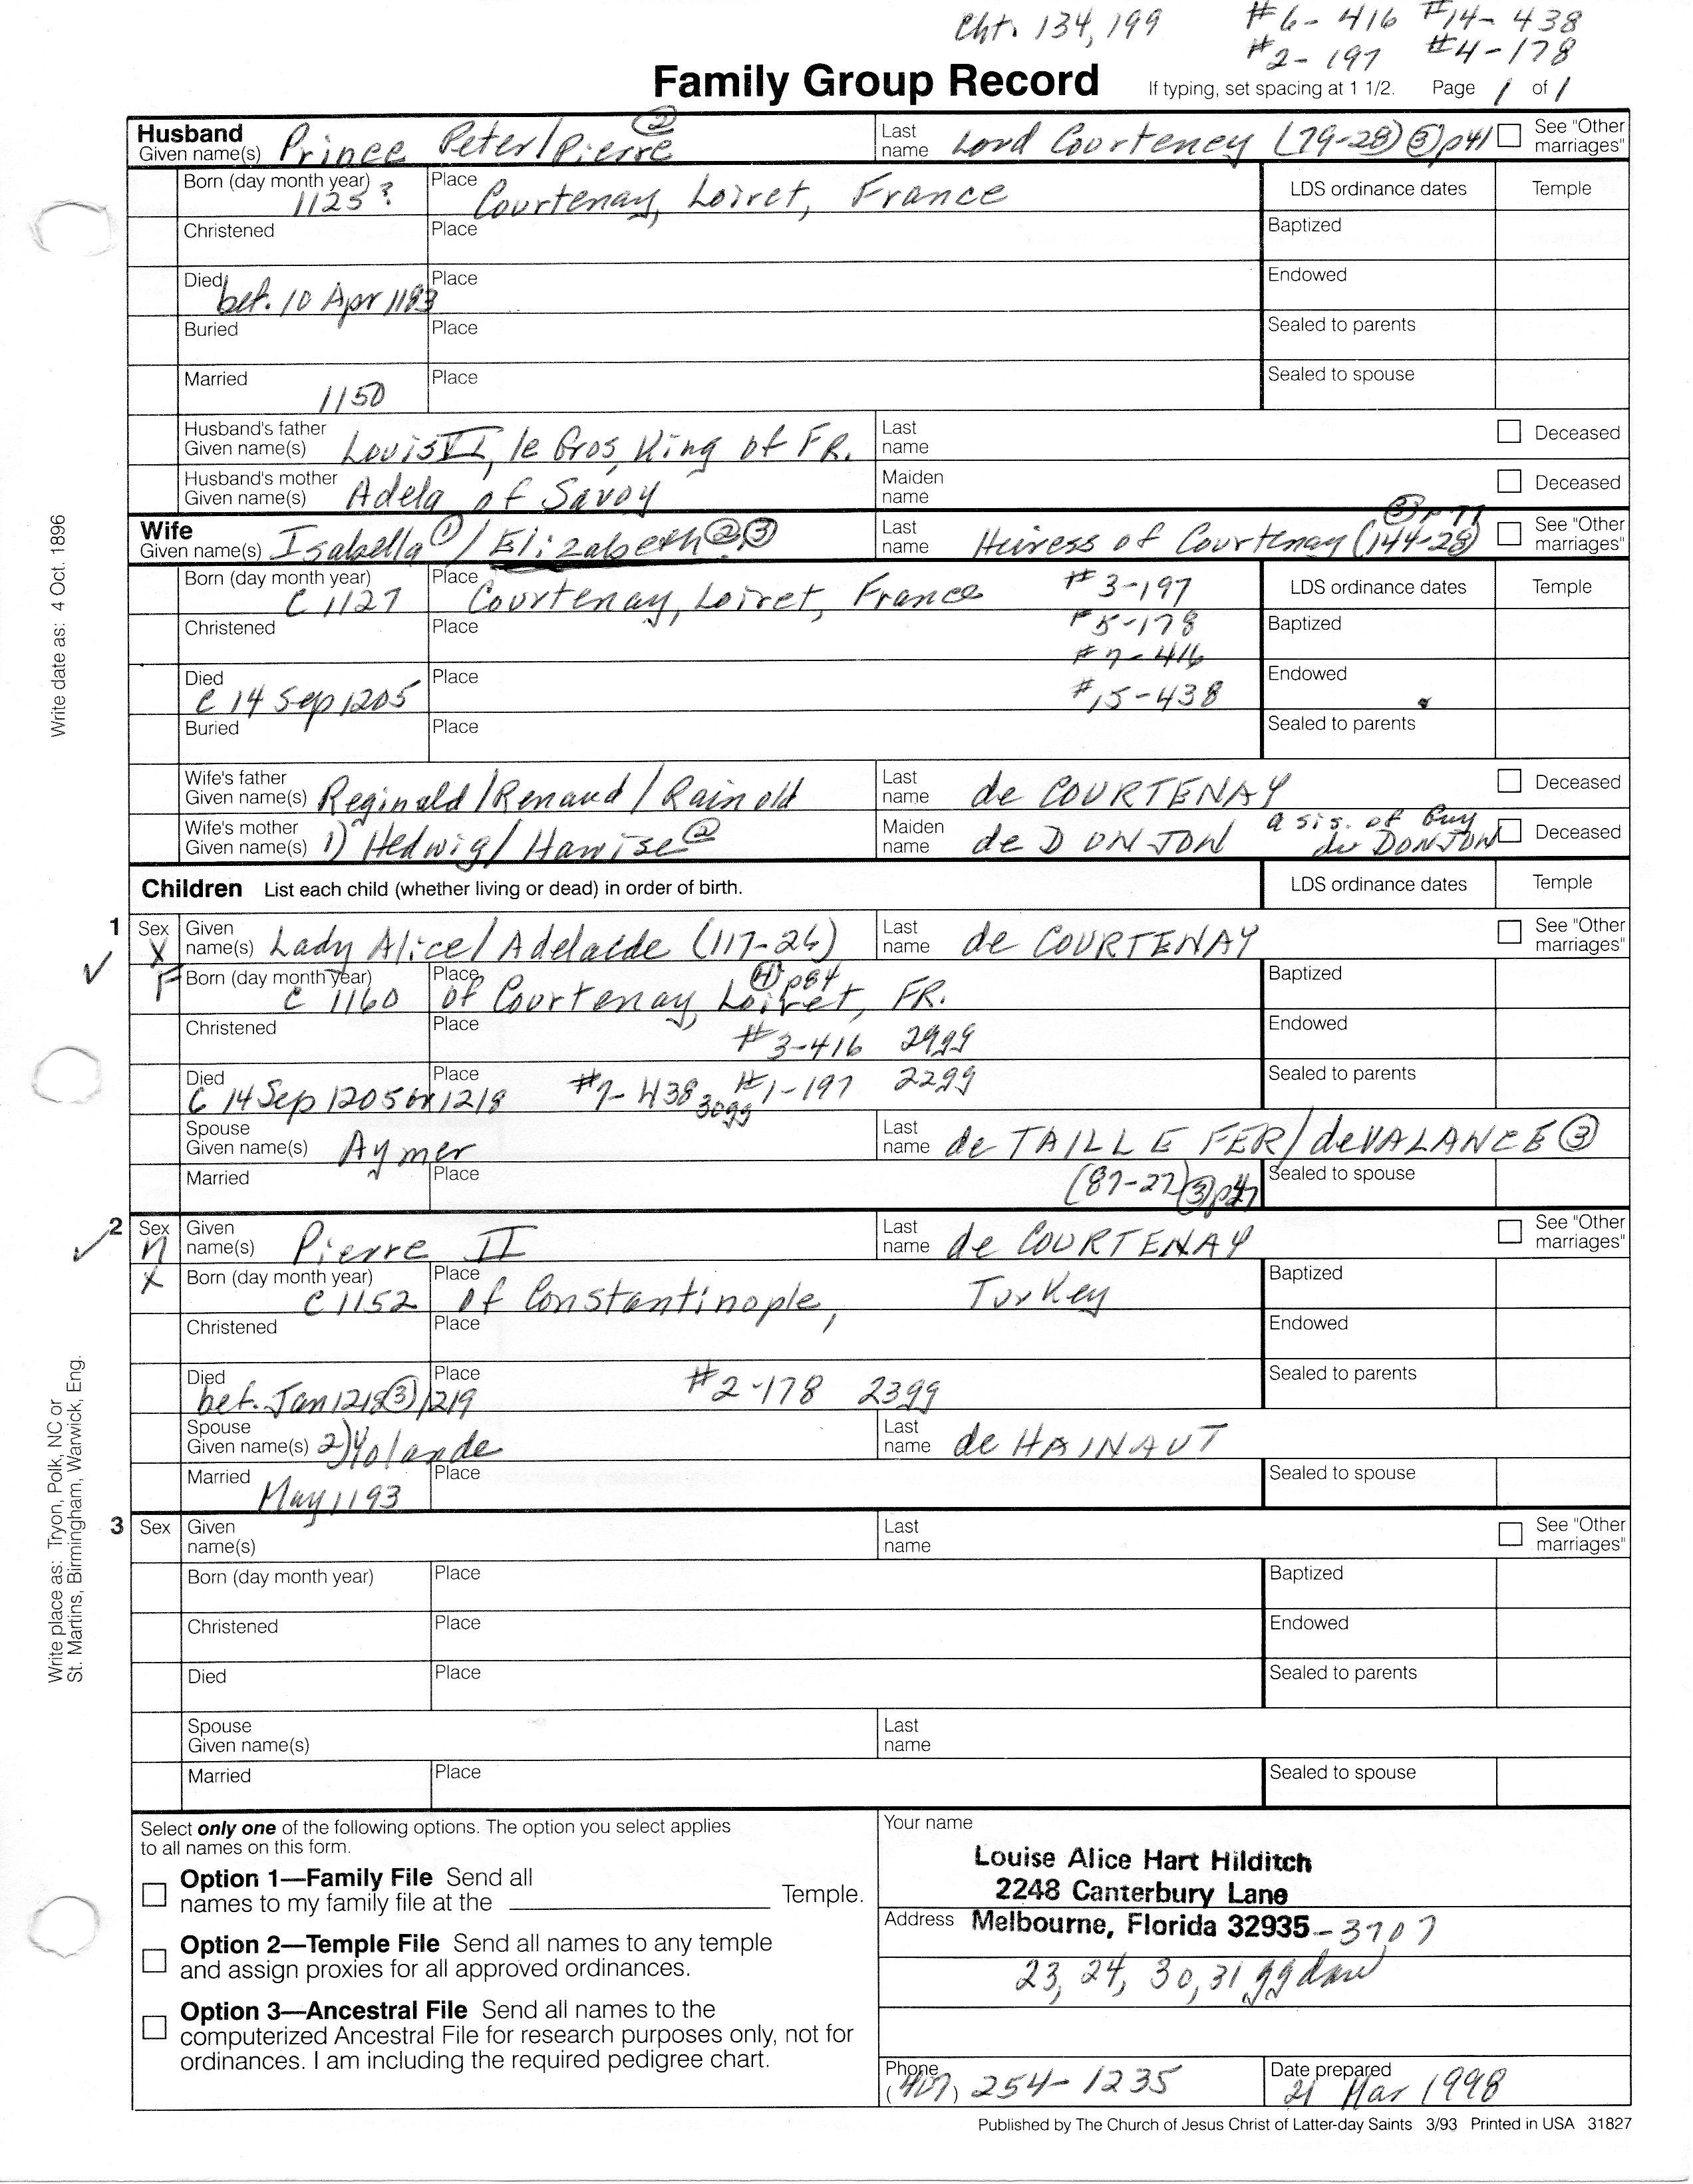 Cht. 134, 199 #6- 416 #14- 438
#2- 197 #4-178
Family Group Record If typing, set spacing at 1 1/2. Page 1 of 1
Husband
Given name(s) Prince Peter/Pierre ② Last name Lord Courteney (79-28) ③p41 See "Other marriages"
Born (day month year) 1125? Place Courtenay, Loiret, France LDS ordinance dates Temple
Christened Place Baptized
Died bef. 10 Apr 1183 Place Endowed
Buried Place Sealed to parents
Married 1150 Place Sealed to spouse
Husband's father
Given name(s) Louis VI, le Gros, King of FR. Last name Deceased
Husband's mother
Given name(s) Adela of Savoy Maiden name Deceased
Wife
Given name(s) Isabella ① / Elizabeth ②,③ Last name Heiress of Courtenay (144-28) ③ See "Other marriages"
Born (day month year) C 1127 Place Courtenay, Loiret, France #3-197 LDS ordinance dates Temple
Christened Place #5-178 Baptized
#7-416
Died C 14 Sep 1205 Place #15-438 Endowed
Buried Place Sealed to parents
Wife's father
Given name(s) Reginald/Renaud/Rainold Last name de COURTENAY Deceased
Wife's mother
Given name(s) 1) Hedwig/Hawise ② Maiden name de DONJON a sis. of Guy du DONJON Deceased
Children List each child (whether living or dead) in order of birth. LDS ordinance dates Temple
1 Sex X Given name(s) Lady Alice/Adelaide (117-26) Last name de COURTENAY See "Other marriages"
F Born (day month year) C 1160 Place of Courtenay, Loiret, FR. ④ p84 Baptized
Christened Place #3-416 29gg Endowed
Died C 14 Sep 1205 or 1218 Place #7-438 30gg #1-197 22gg Sealed to parents
Spouse
Given name(s) Aymer Last name de TAILLEFER/deVALANCE ③
Married Place (87-27) ③p47 Sealed to spouse
2 Sex M Given name(s) Pierre II Last name de COURTENAY See "Other marriages"
X Born (day month year) C 1152 Place of Constantinople, Turkey Baptized
Christened Place Endowed
Died bef. Jan 1218 ③/1219 Place #2-178 23gg Sealed to parents
Spouse
Given name(s) 2) Yolande Last name de HAINAUT
Married May 1193 Place Sealed to spouse
3 Sex Given name(s) Last name See "Other marriages"
Born (day month year) Place Baptized
Christened Place Endowed
Died Place Sealed to parents
Spouse
Given name(s) Last name
Married Place Sealed to spouse
Select only one of the following options. The option you select applies
to all names on this form.
Option 1—Family File Send all
names to my family file at the Temple.
Option 2—Temple File Send all names to any temple
and assign proxies for all approved ordinances.
Option 3—Ancestral File Send all names to the
computerized Ancestral File for research purposes only, not for
ordinances. I am including the required pedigree chart.
Your name
Louise Alice Hart Hilditch
2248 Canterbury Lane
Address Melbourne, Florida 32935-3707
23, 24, 30, 31 gg dau
Phone (407) 254-1235 Date prepared 21 Mar 1998
Published by The Church of Jesus Christ of Latter-day Saints 3/93 Printed in USA 31827
Write date as: 4 Oct. 1896
Write place as: Tryon, Polk, NC or
St. Martins, Birmingham, Warwick, Eng.